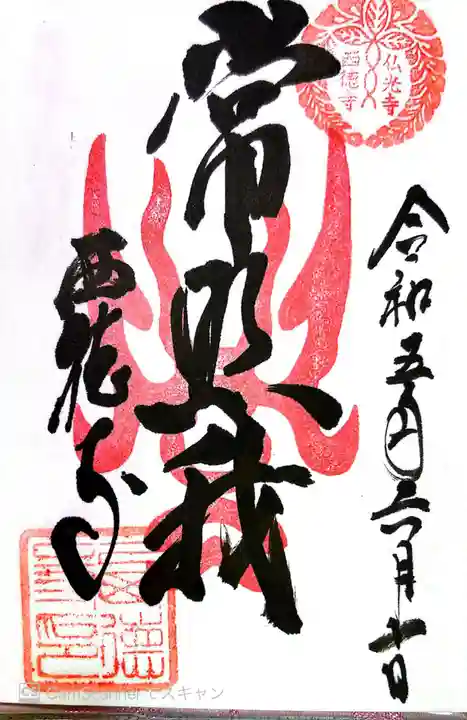 仏光寺
西徳寺
令和五年六月十日
常照我
西徳寺
CS CamScanner でスキャン